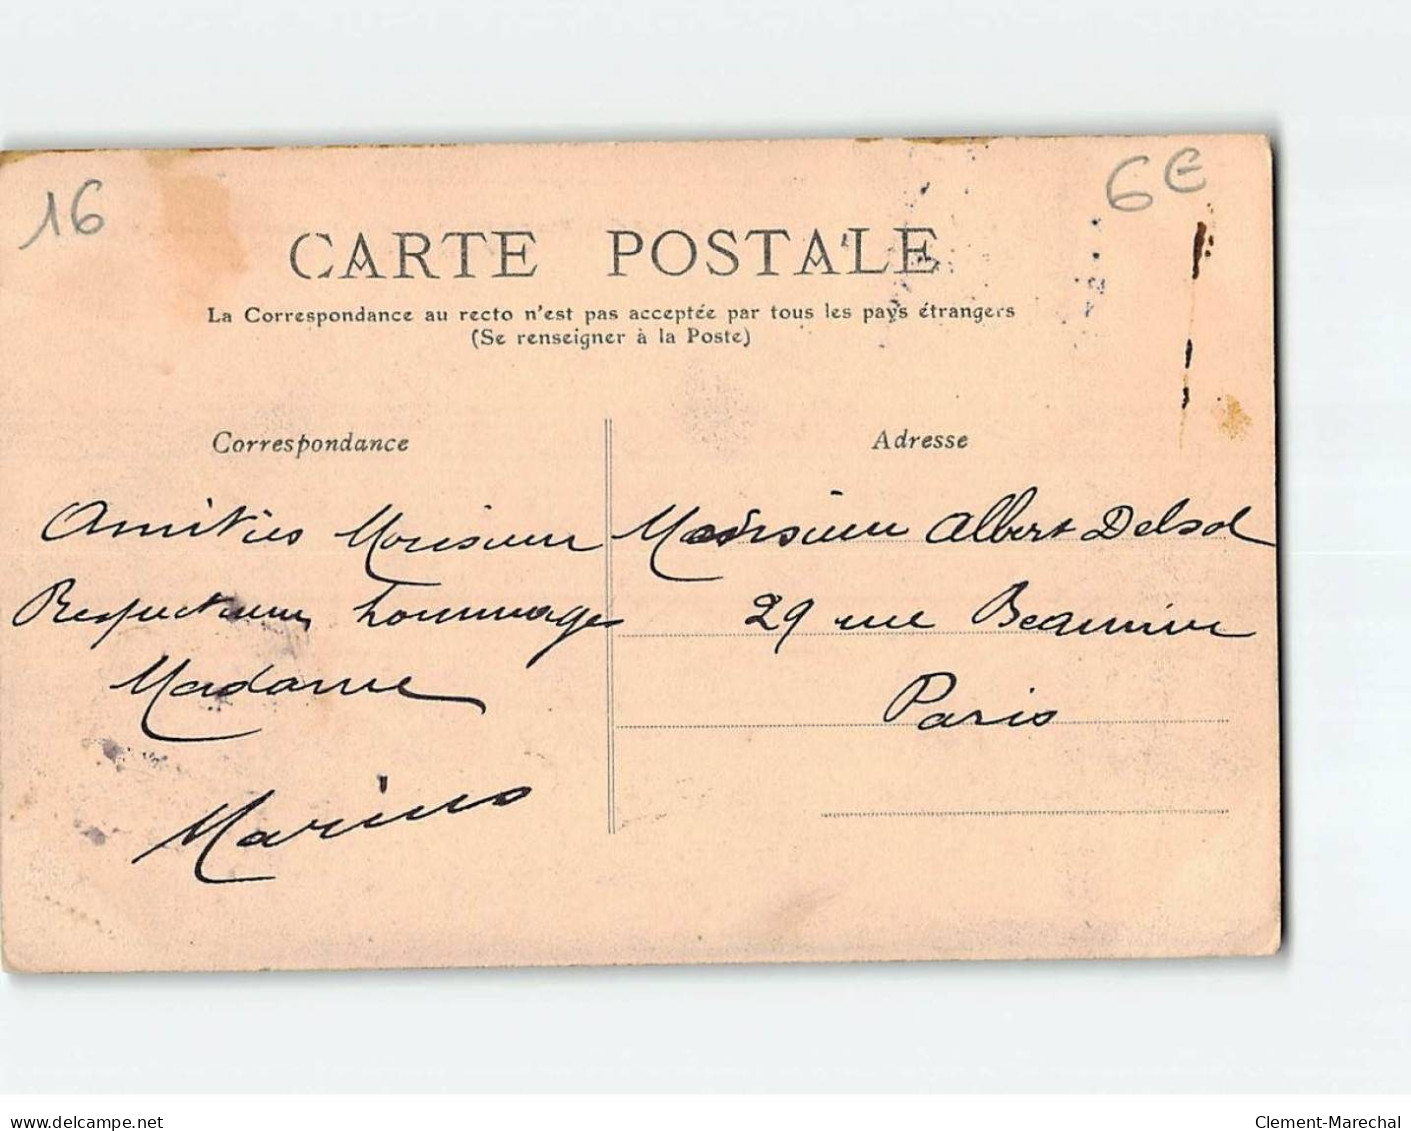 16
6€
CARTE POSTALE
La Correspondance au recto n'est pas acceptée par tous les pays étrangers
(Se renseigner à la Poste)
Correspondance
Amitiés Monsieur
Respectueux hommages
Madame
Marius
Adresse
Monsieur Albert Delsol
29 rue Beaunier
Paris
www.delcampe.net
Clement-Marechal